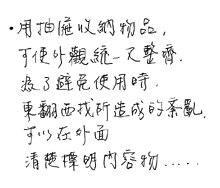 •用抽屜收納物品,
可使外觀統一又整齊.
為了避免使用時.
東翻西找所造成的紊亂.
可以在外面
清楚標明內容物.....